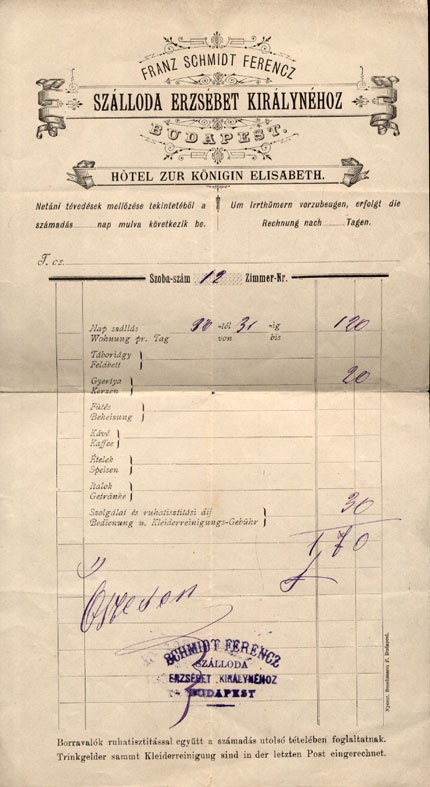 FRANZ SCHMIDT FERENCZ
SZÁLLODA ERZSÉBET KIRÁLYNÉHOZ
BUDAPEST.
HÔTEL ZUR KÖNIGIN ELISABETH.
Netáni tévedések mellőzése tekintetéből a
számadás nap mulva következik be.
Um Irrthümern vorzubeugen, erfolgt die
Rechnung nach Tagen.
T. cz.
Szoba-szám 12 Zimmer-Nr.
Nap szállás 30 -tól 31 -ig 120
Wohnung pr. Tag von bis
Táboriágy
Feldbett
Gyertya 20
Kerzen
Fűtés
Beheizung
Kávé
Kaffee
Ételek
Speisen
Italok
Getränke
Szolgálat és ruhatisztitási dij 30
Bedienung u. Kleiderreinigungs-Gebühr
1,70
SCHMIDT FERENCZ
SZÁLLODA
ERZSÉBET KIRÁLYNÉHOZ
BUDAPEST
Borravalók ruhatisztitással együtt a számadás utolsó tételében foglaltatnak.
Trinkgelder sammt Kleiderreinigung sind in der letzten Post eingerechnet.